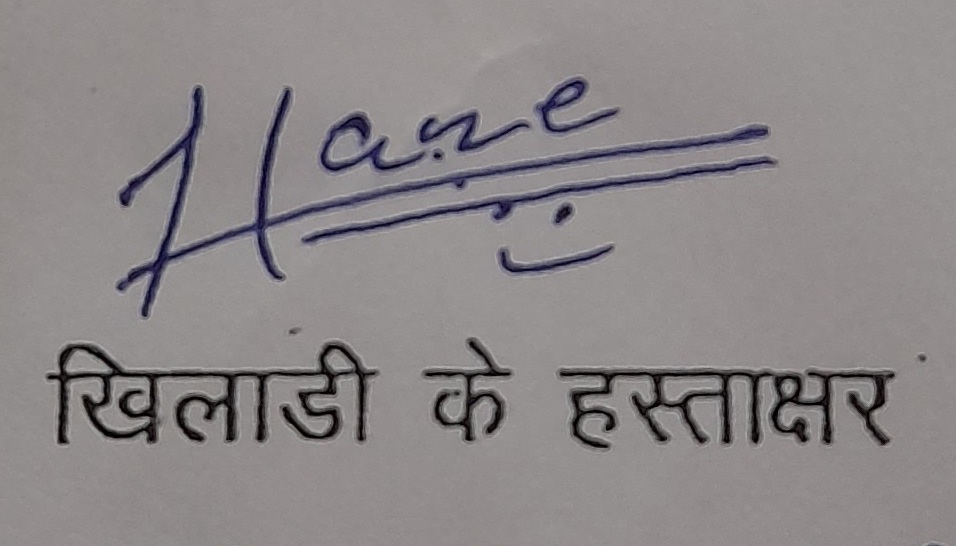 Hane
खिलाडी के हस्ताक्षर